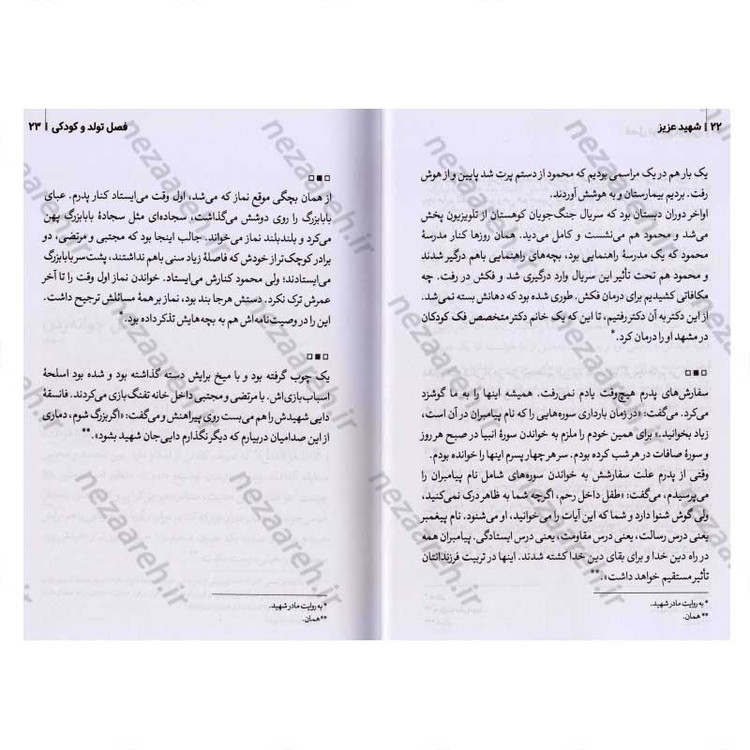 ۲۲ | شهید عزیز
یک بار هم در یک مراسمی بودیم که محمود از دستم پرت شد پایین و از هوش
رفت. بردیم بیمارستان و به هوشش آوردند.
اواخر دوران دبستان بود که سریال جنگ‌جویان کوهستان از تلویزیون پخش
می‌شد و محمود هم می‌نشست و کامل می‌دید. همان روزها کنار مدرسهٔ
محمود که یک مدرسهٔ راهنمایی بود، بچه‌های راهنمایی باهم درگیر شدند
و محمود هم تحت تأثیر این سریال وارد درگیری شد و فکش در رفت. چه
مکافاتی کشیدیم برای درمان فکش. طوری شده بود که دهانش بسته نمی‌شد.
از این دکتر به آن دکتر رفتیم، تا این که یک خانم دکتر متخصص فک کودکان
در مشهد او را درمان کرد.*
سفارش‌های پدرم هیچ‌وقت یادم نمی‌رفت. همیشه اینها را به ما گوشزد
می‌کرد. می‌گفت: «در زمان بارداری سوره‌هایی را که نام پیامبران در آن است،
زیاد بخوانید.» برای همین خودم را ملزم به خواندن سورهٔ انبیا در صبح هر روز
و سورهٔ صافات در هر شب کرده بودم. سر هر چهار پسرم اینها را خوانده بودم.
وقتی از پدرم علت سفارشش به خواندن سوره‌های شامل نام پیامبران را
می‌پرسیدم، می‌گفت: «طفل داخل رحم، اگرچه شما به ظاهر درک نمی‌کنید،
ولی گوش شنوا دارد و شما که این آیات را می‌خوانید، او می‌شنود. نام پیغمبر
یعنی درس رسالت، یعنی درس مقاومت، یعنی درس ایستادگی. پیامبران همه
در راه دین خدا و برای بقای دین خدا کشته شدند. اینها در تربیت فرزندانتان
تأثیر مستقیم خواهد داشت».**
* به روایت مادر شهید.
** همان.
فصل تولد و کودکی | ۲۳
از همان بچگی موقع نماز که می‌شد، اول وقت می‌ایستاد کنار پدرم. عبای
بابابزرگ را روی دوشش می‌گذاشت، سجاده‌ای مثل سجادهٔ بابابزرگ پهن
می‌کرد و بلندبلند نماز می‌خواند. جالب اینجا بود که مجتبی و مرتضی، دو
برادر کوچک‌تر از خودش که فاصلهٔ زیاد سنی باهم نداشتند، پشت سر بابابزرگ
می‌ایستادند؛ ولی محمود کنارش می‌ایستاد. خواندن نماز اول وقت را تا آخر
عمرش ترک نکرد. دستش هرجا بند بود، نماز بر همهٔ مسائلش ترجیح داشت.
این را در وصیت‌نامه‌اش هم به بچه‌هایش تذکر داده بود.*
یک چوب گرفته بود و با میخ برایش دسته گذاشته بود و شده بود اسلحهٔ
اسباب‌بازی‌اش. با مرتضی و مجتبی داخل خانه تفنگ بازی می‌کردند. فانسقهٔ
دایی شهیدش را هم می‌بست روی پیراهنش و می‌گفت: «اگر بزرگ شوم، دماری
از این صدامیان دربیارم که دیگر نگذارم دایی‌جان شهید بشود».**
* به روایت مادر شهید.
** همان.
nezaareh.ir
nezaareh.ir
nezaareh.ir
nezaareh.ir
nezaareh.ir
nezaareh.ir